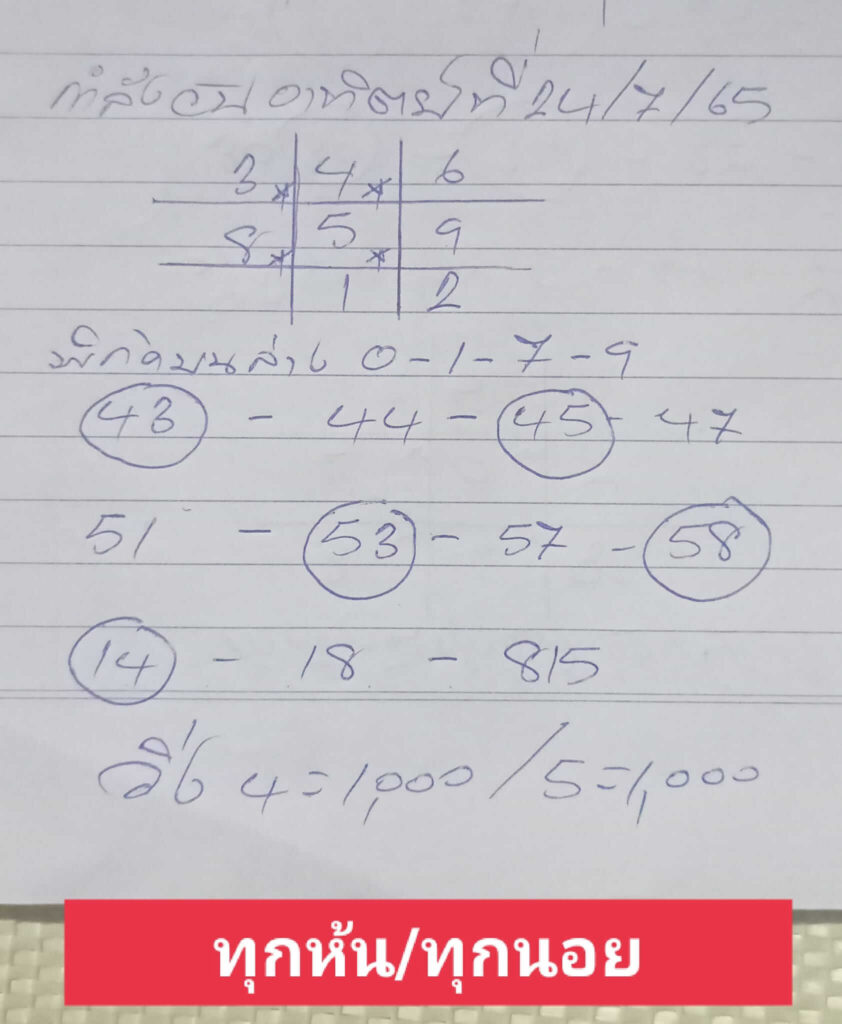 กำลังวันอาทิตย์ที่ 24/7/65
3 * 4 * 6
8 * 5 * 9
1 2
พิกัดบนล่าง 0-1-7-9
43 - 44 - 45 - 47
51 - 53 - 57 - 58
14 - 18 - 815
วิ่ง 4=1,000 / 5=1,000
ทุกห้น/ทุกนอย